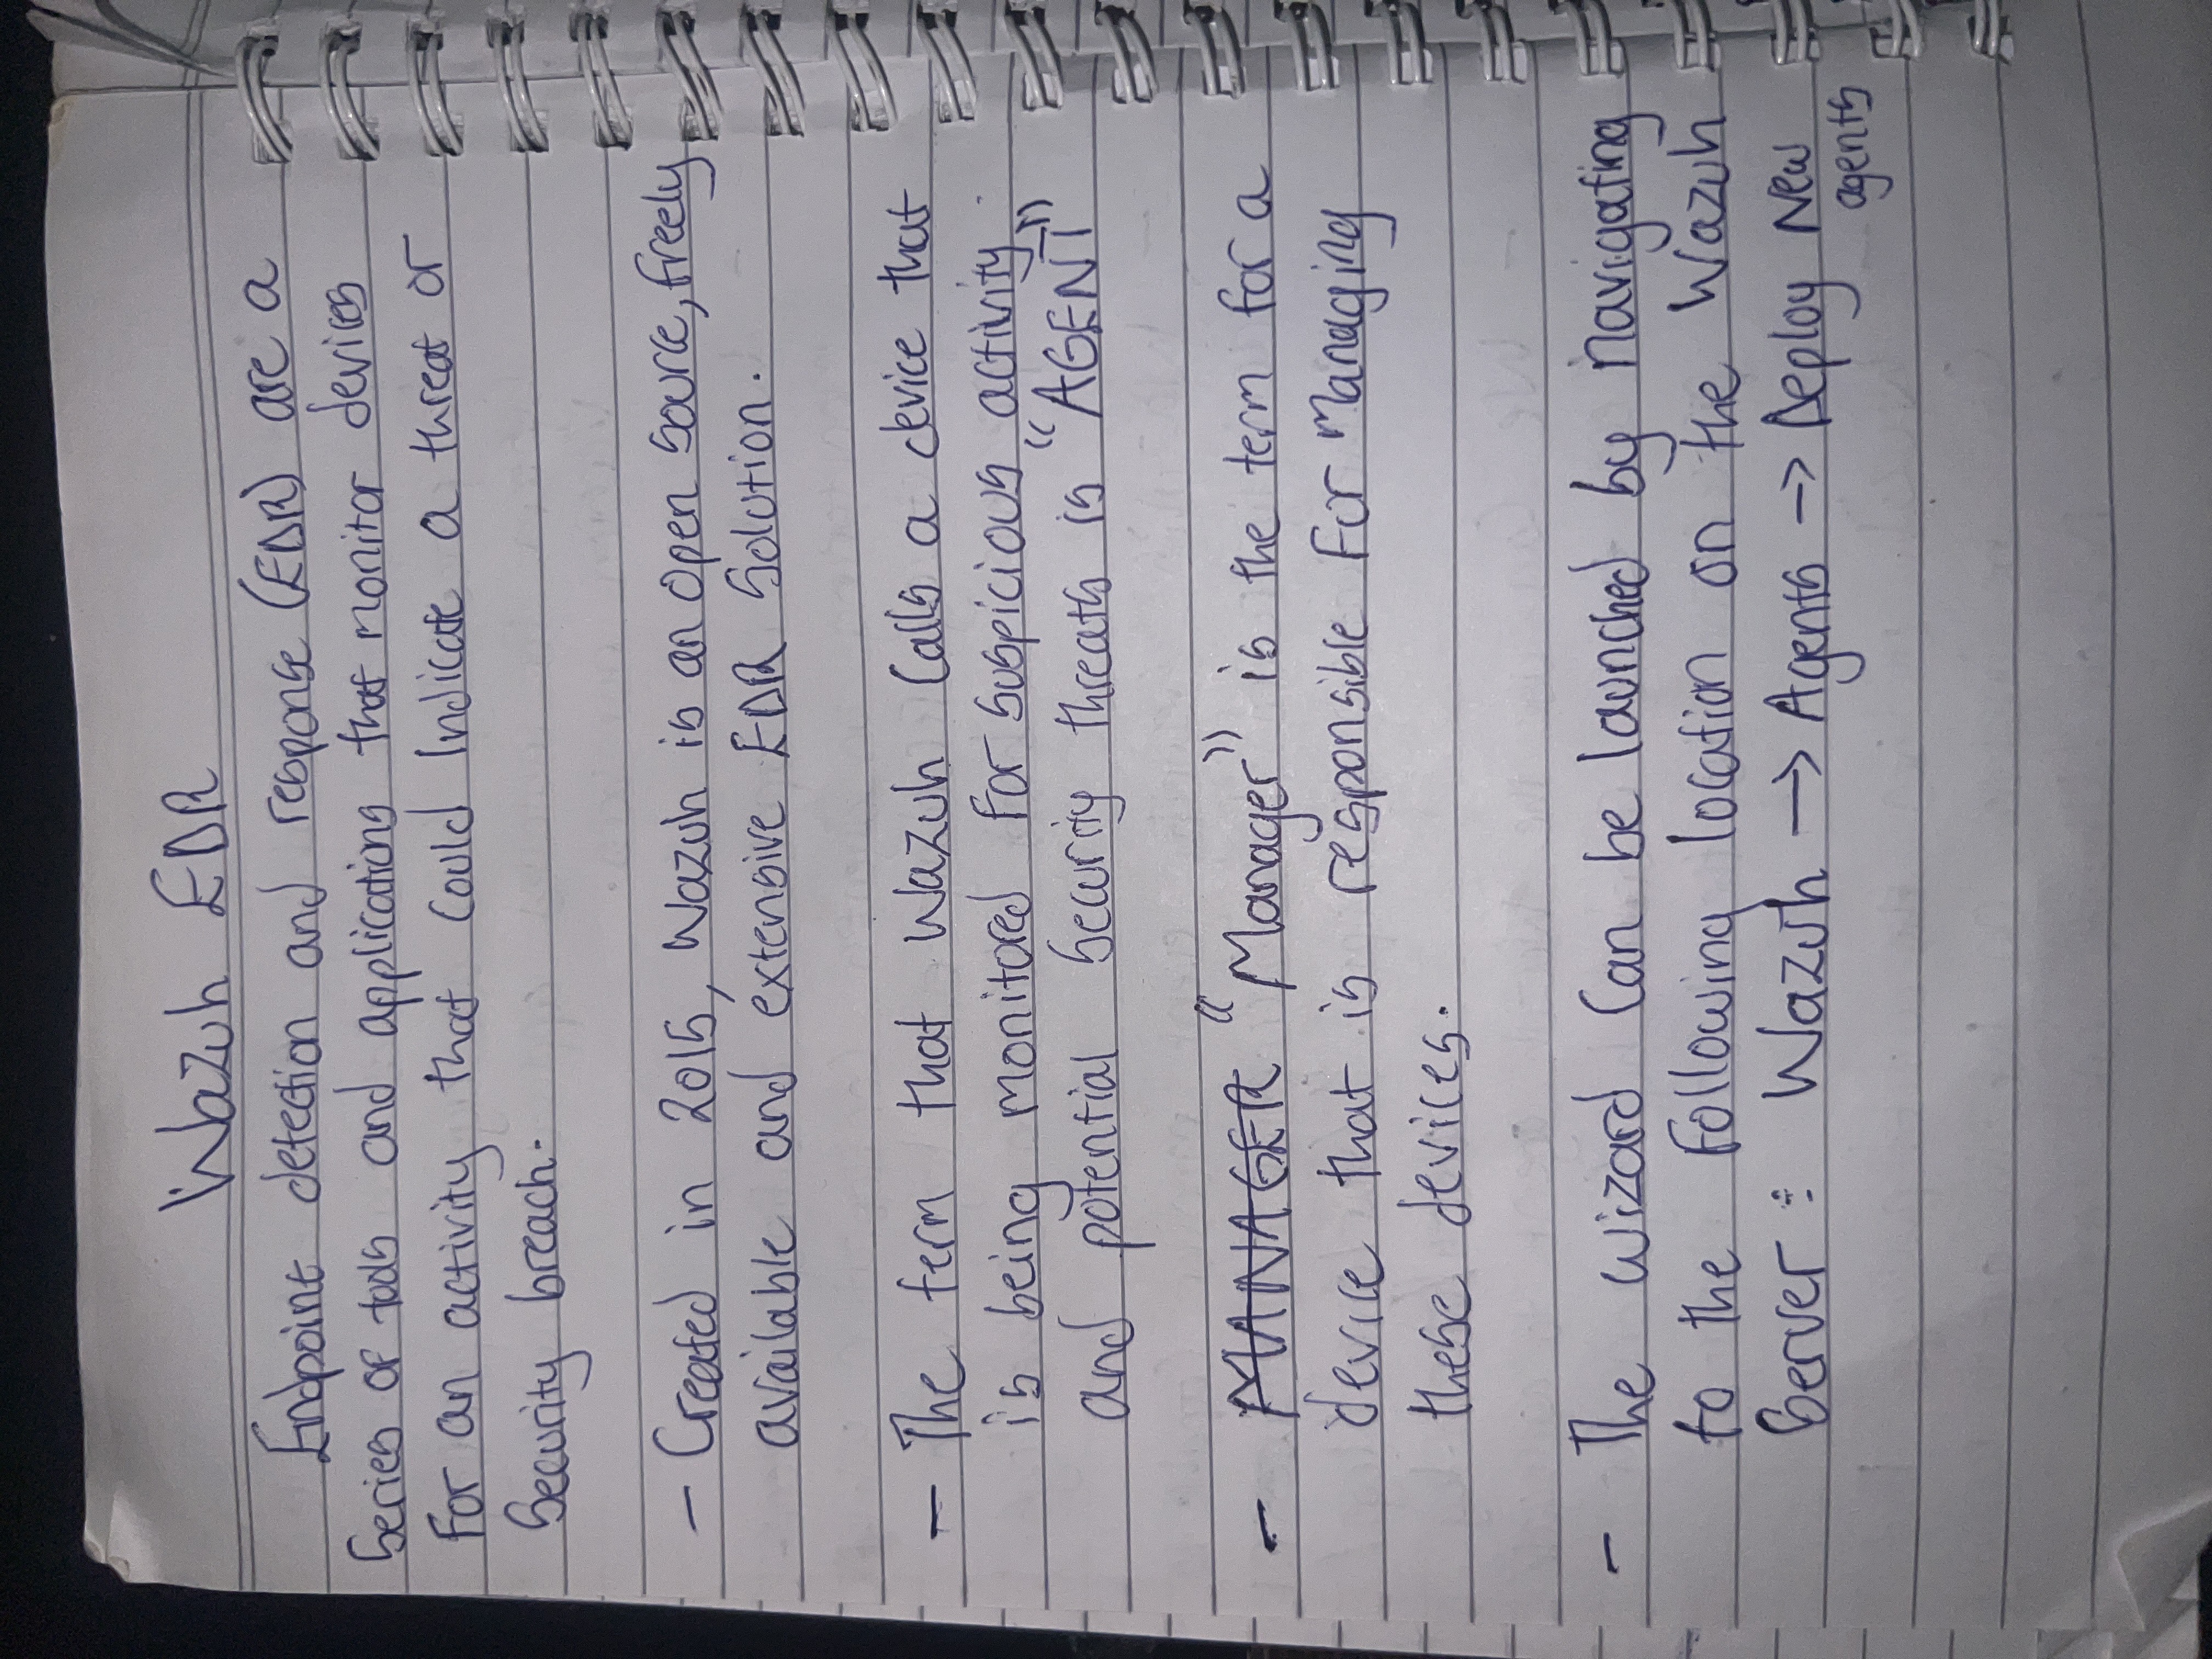 Wazuh EDR
Endpoint detection and response (EDR) are a
Series of tools and applications that monitor devices
for an activity that could Indicate a threat or
Security breach.
- Created in 2015, Wazuh is an open source, freely
available and extensive EDR Solution.
- The term that Wazuh calls a device that
is being monitored for suspicious activity
and potential security threats is "AGENT"
- MANAGER "Manager" is the term for a
device that is responsible for managing
these devices.
- The wizard can be launched by navigating
to the following location on the Wazuh
Server : Wazuh → Agents → Deploy New
agents